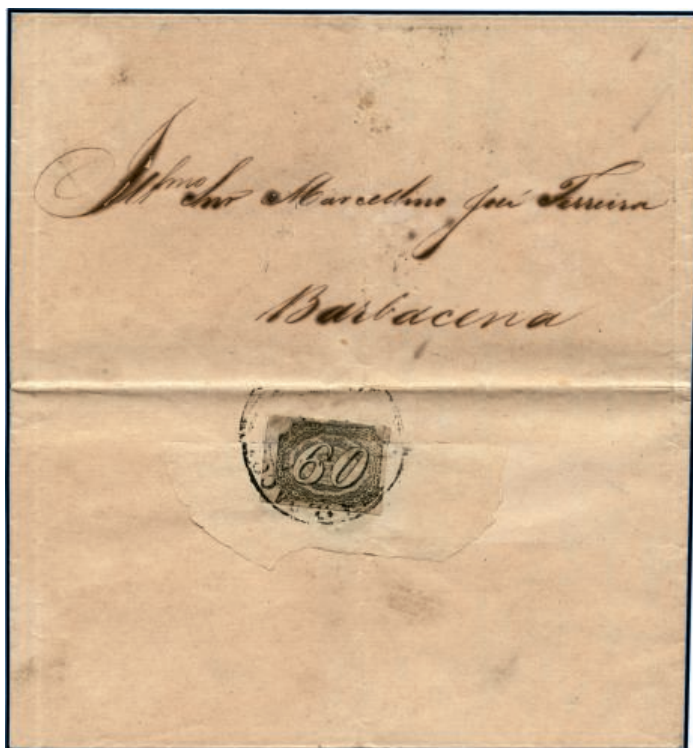 Illmo Snr Marcellino José Ferreira
Barbacena
60